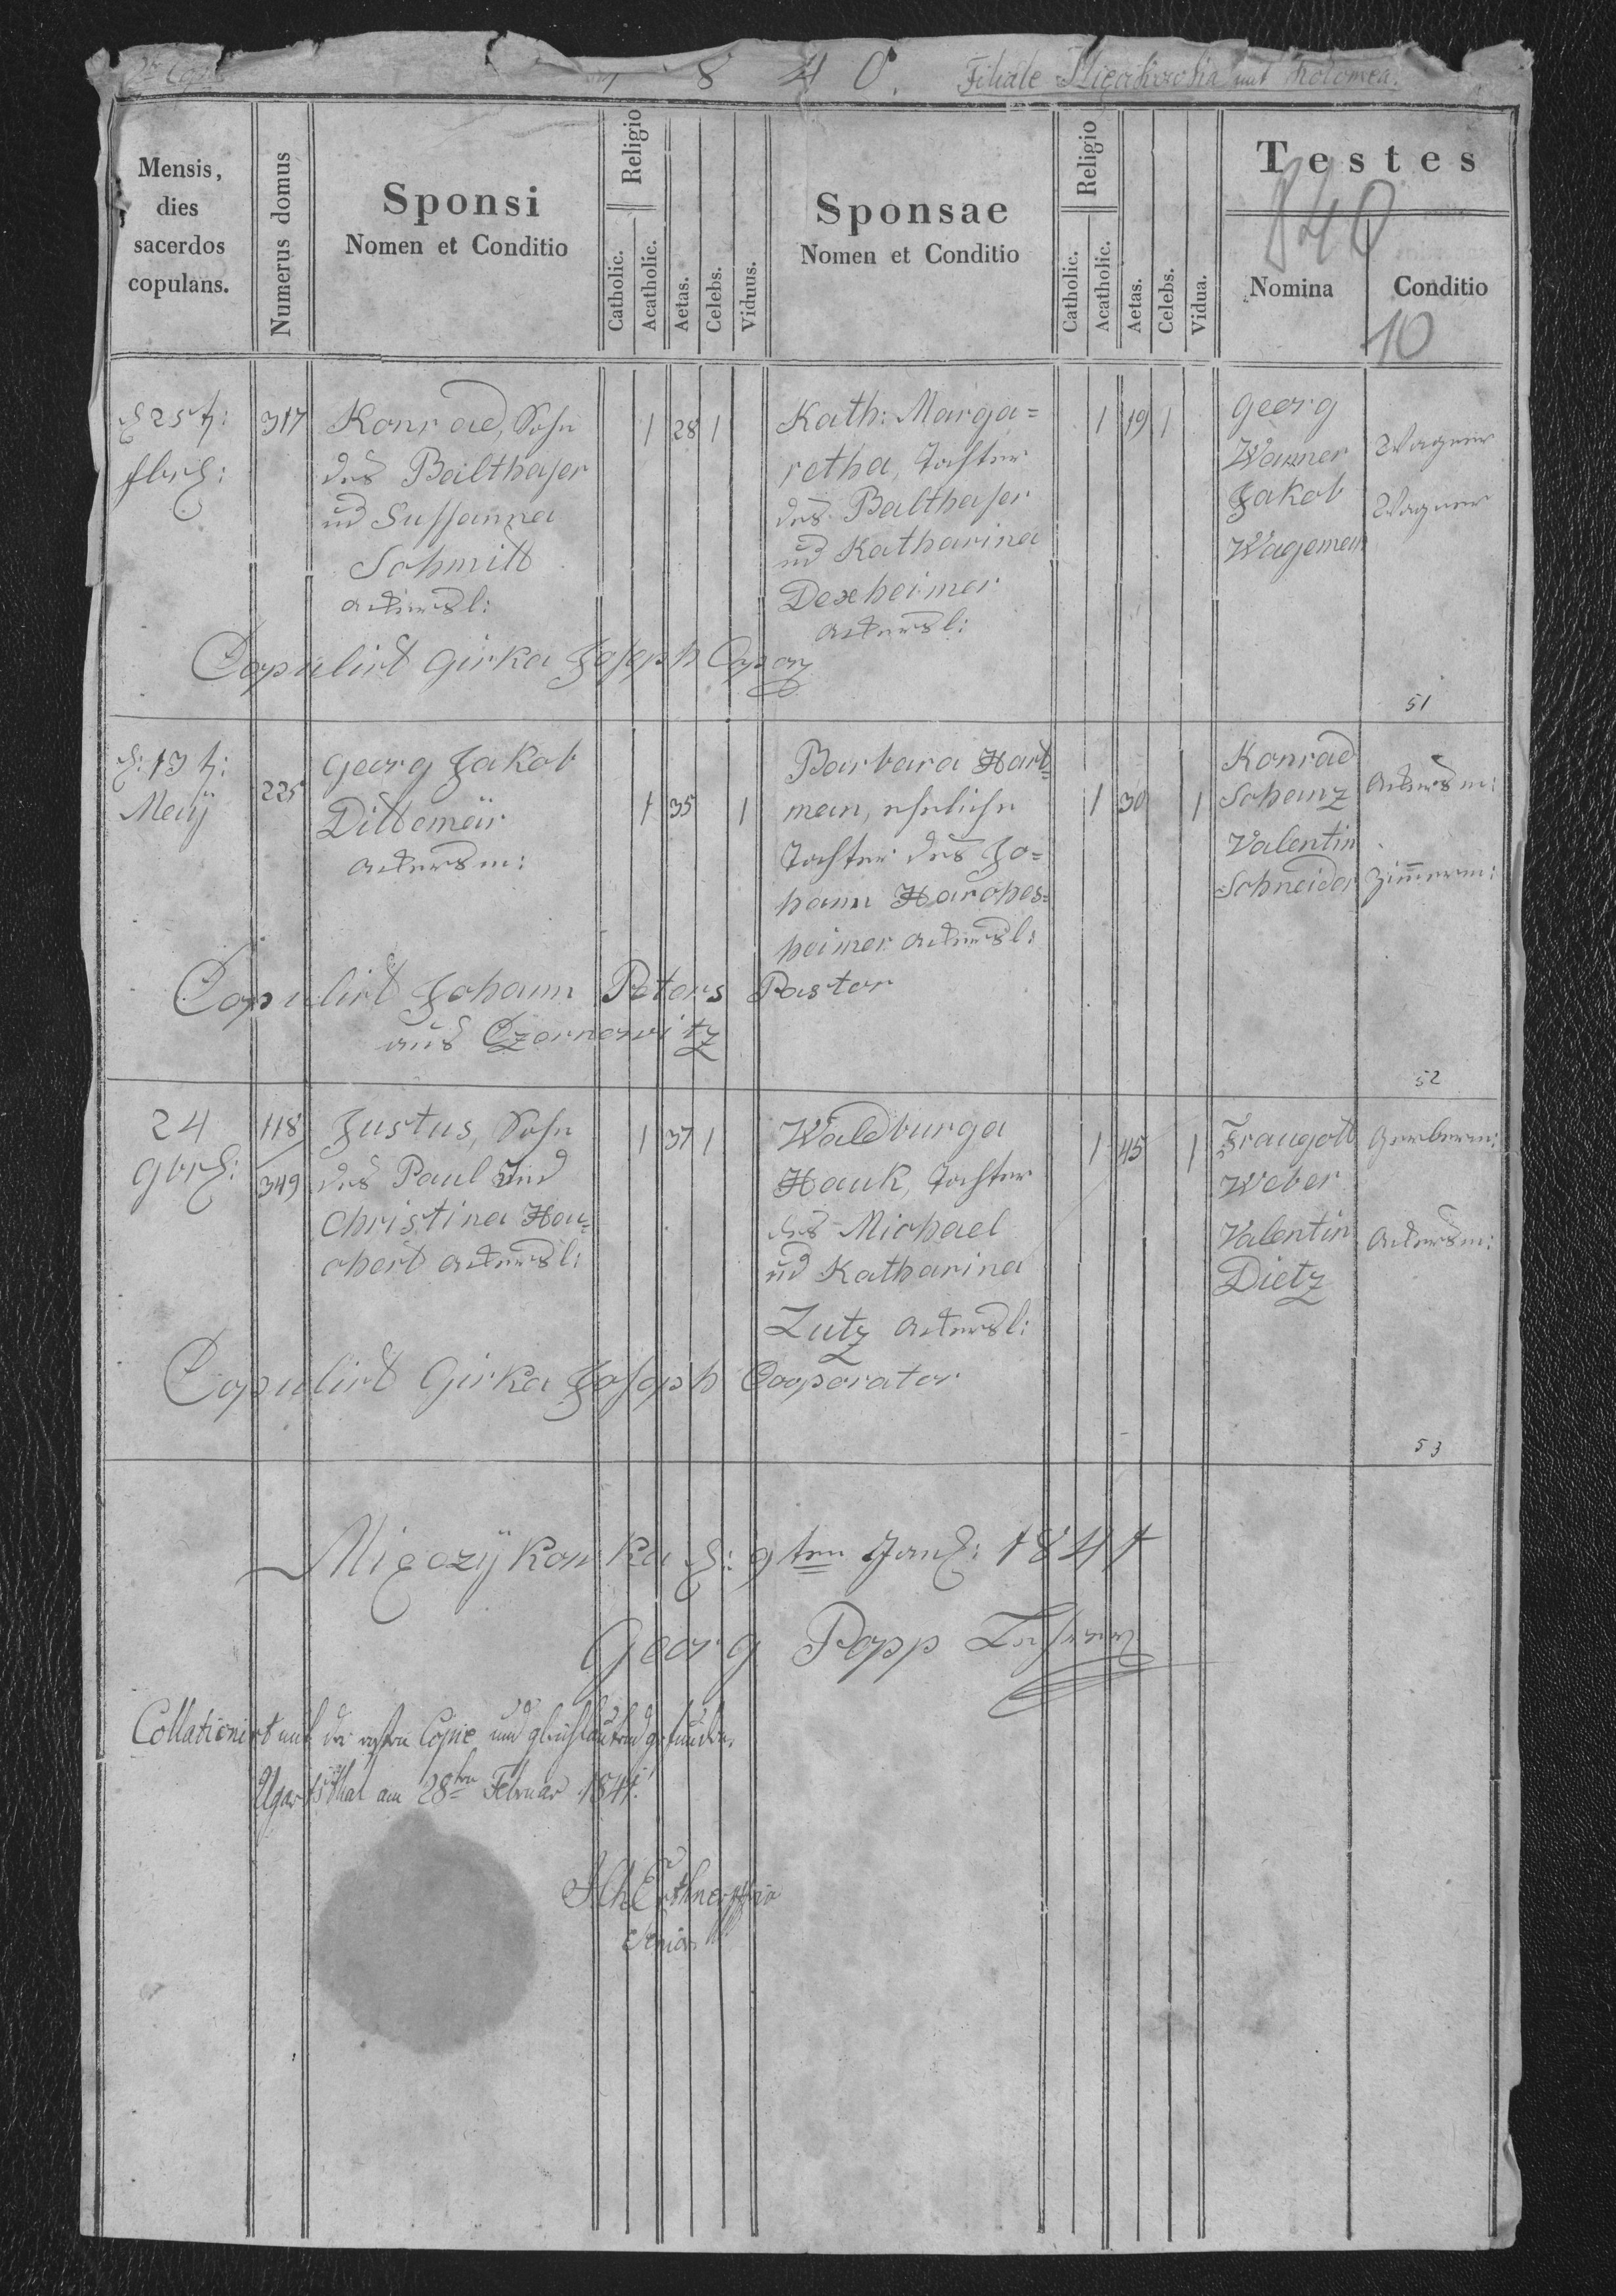 1 8 4 0. Filiale mit Kolomea.
Mensis, dies sacerdos copulans.
Numerus domus
Sponsi
Nomen et Conditio
Religio
Catholic.
Acatholic.
Aetas.
Celebs.
Viduus.
Sponsae
Nomen et Conditio
Religio
Catholic.
Acatholic.
Aetas.
Celebs.
Vidua.
Testes
Nomina
Conditio
840
10
d 25 t:
fbrr:
317
Konrad, Sohn
des Balthaser
ud Sussanna
Schmitt
Ackersl:
1 28 1
Kath: Marga=
retha, Tochter
des Balthaser
ud Katharina
Dexheimer
Ackersl:
1 19 1
Georg
Wanner
Jakob
Wageman
Wagner
Wagner
Copulirt Girka Joseph
51
d: 13 t:
Maÿ
225
Georg Jakob
Dittemeir
Ackersm:
1 35 1
Barbara Hart=
man, ehrliche
Tochter des Jo=
hann Harches=
heimer Ackersl:
1 30 1
Konrad
Schanz
Valentin
Schneider
Ackersm:
Zimmerm:
Copulirt Johann Peters Pastor
aus Czernowitz
52
24
9brr:
118
349
Justus, Sohn
des Paul und
Christina Hau=
chert Ackersl:
1 37 1
Waldburga
Hauk, Tochter
des Michael
ud Katharina
Lutz Ackersl:
1 45 1
Traugott
Weber
Valentin
Dietz
Gerberm:
Ackersm:
Copulirt Girka Joseph Cooperator
53
Mięczÿkowka d: 9ten Janr: 1841
Georg Popp Lehrer
Collationirt mit der ersten Copie und gleichlautend gefunden.
Ugartsthal am 28ten Februar 1841.
Senior